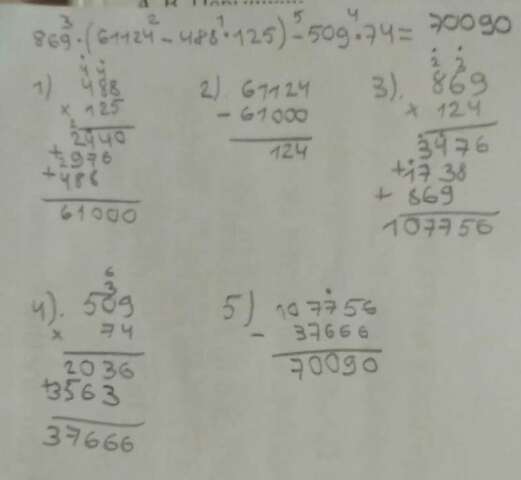 3 2 1 5 4
869·(61124-488·125)-509·74= 70090
1) 488
× 125
2440
+ 976
+ 488
61000
2) 61124
- 61000
124
3). 869
× 124
3476
+ 1738
+ 869
107756
4). 509
× 74
2036
+ 3563
37666
5) 107756
- 37666
70090